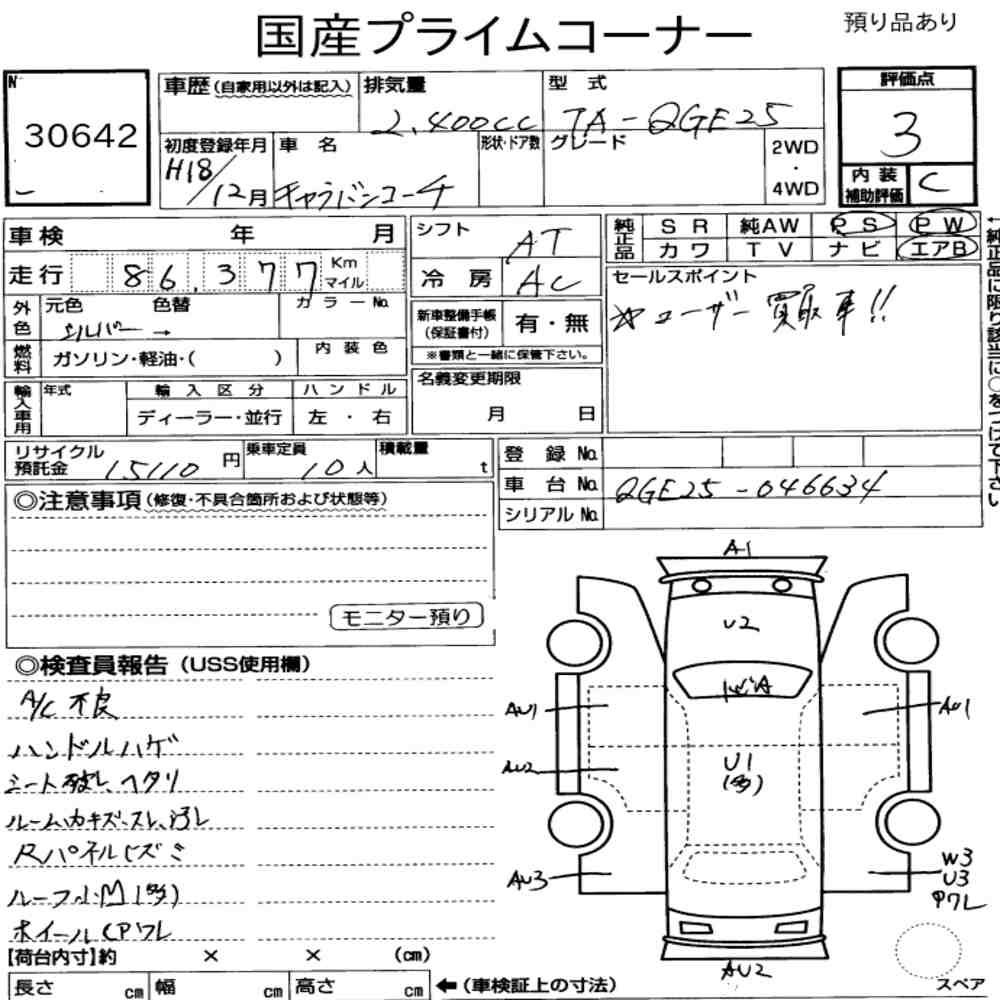 国産プライムコーナー
預り品あり
N
30642
車歴 (自家用以外は記入)
排気量
2.400cc
型 式
TA-QGE25
評価点
3
初度登録年月
H18/12月
車 名
キャラバンコーチ
形状・ドア数
グレード
2WD
・
4WD
内 装
補助評価
C
車 検 年 月
シフト
AT
純正品
S R
純AW
P S
P W
カ ワ
T V
ナ ビ
エアB
走 行 86,377 Km
マイル
冷 房
AC
セールスポイント
☆ユーザー買取車!!
外色
元色 色替
シルバー →
カ ラ ー No.
新車整備手帳
(保証書付)
有・無
※書類と一緒に保管下さい。
燃料
ガソリン・軽油・( )
内 装 色
名義変更期限
月 日
輸入車用
年式
輸 入 区 分
ディーラー・並行
ハ ン ド ル
左 ・ 右
←純正品に限り該当に○をつけて下さい
リサイクル
預託金
15110 円
乗車定員
10人
積載量
t
登 録 No.
車 台 No.
QGE25-046634
シリアル No.
◎注意事項 (修復・不具合箇所および状態等)
モニター預り
◎検査員報告 (USS使用欄)
A/C 不良
ハンドルハゲ
シート破し、ヘタリ
ルーム内キズ、スレ、汚レ
Rパネルヒズミ
ルーフ小凹(多)
ホイールCPワレ
A1
U2
AU1
AU1
AU2
U1
(多)
AU3
W3
U3
Pワレ
AU2
スペア
【荷台内寸】約 × × (cm)
長さ cm
幅 cm
高さ cm
← (車検証上の寸法)